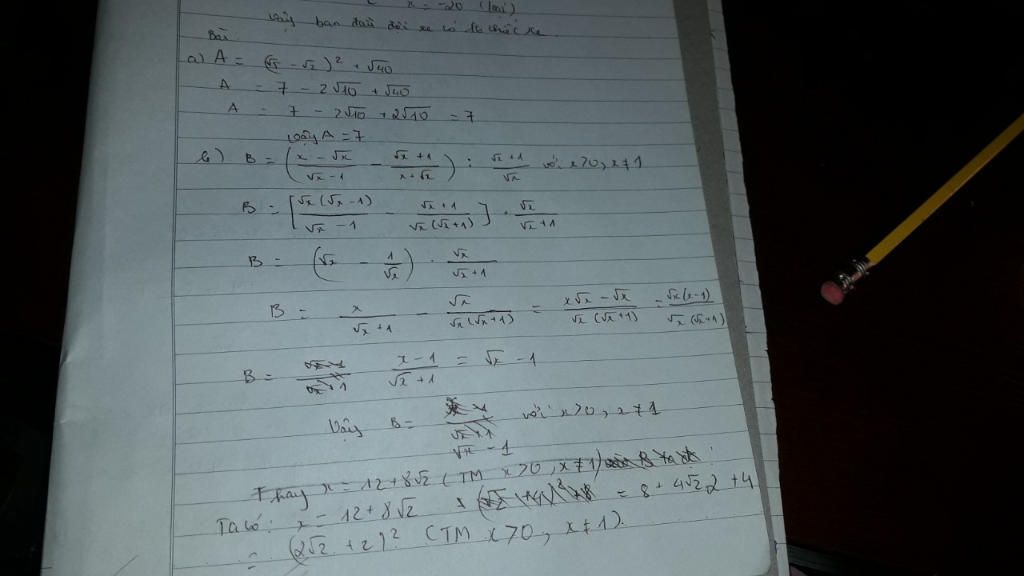 x = -20 (loại)
Vậy ban đầu đội xe có chiếc xe.
Bài
a) A = (√5 - √2)² + √40
A = 7 - 2√10 + √40
A = 7 - 2√10 + 2√10 = 7
Vậy A = 7
b) B = ((x - √x)/(√x - 1) - (√x + 1)/(x + √x)) : (√x + 1)/√x với x>0, x≠1
B = [(√x(√x - 1))/(√x - 1) - (√x + 1)/(√x(√x + 1))] · √x/(√x + 1)
B = (√x - 1/√x) · √x/(√x + 1)
B = x/(√x + 1) - √x/(√x(√x + 1)) = (x√x - √x)/(√x(√x + 1)) = (√x(x - 1))/(√x(√x + 1))
B = (x - 1)/(√x + 1) = √x - 1
Vậy B = √x - 1 với x>0, x≠1
Thay x = 12 + 8√2 (TM x>0, x≠1)
Ta có: x = 12 + 8√2 = 8 + 4√2.2 + 4
= (2√2 + 2)² (TM x>0, x≠1).